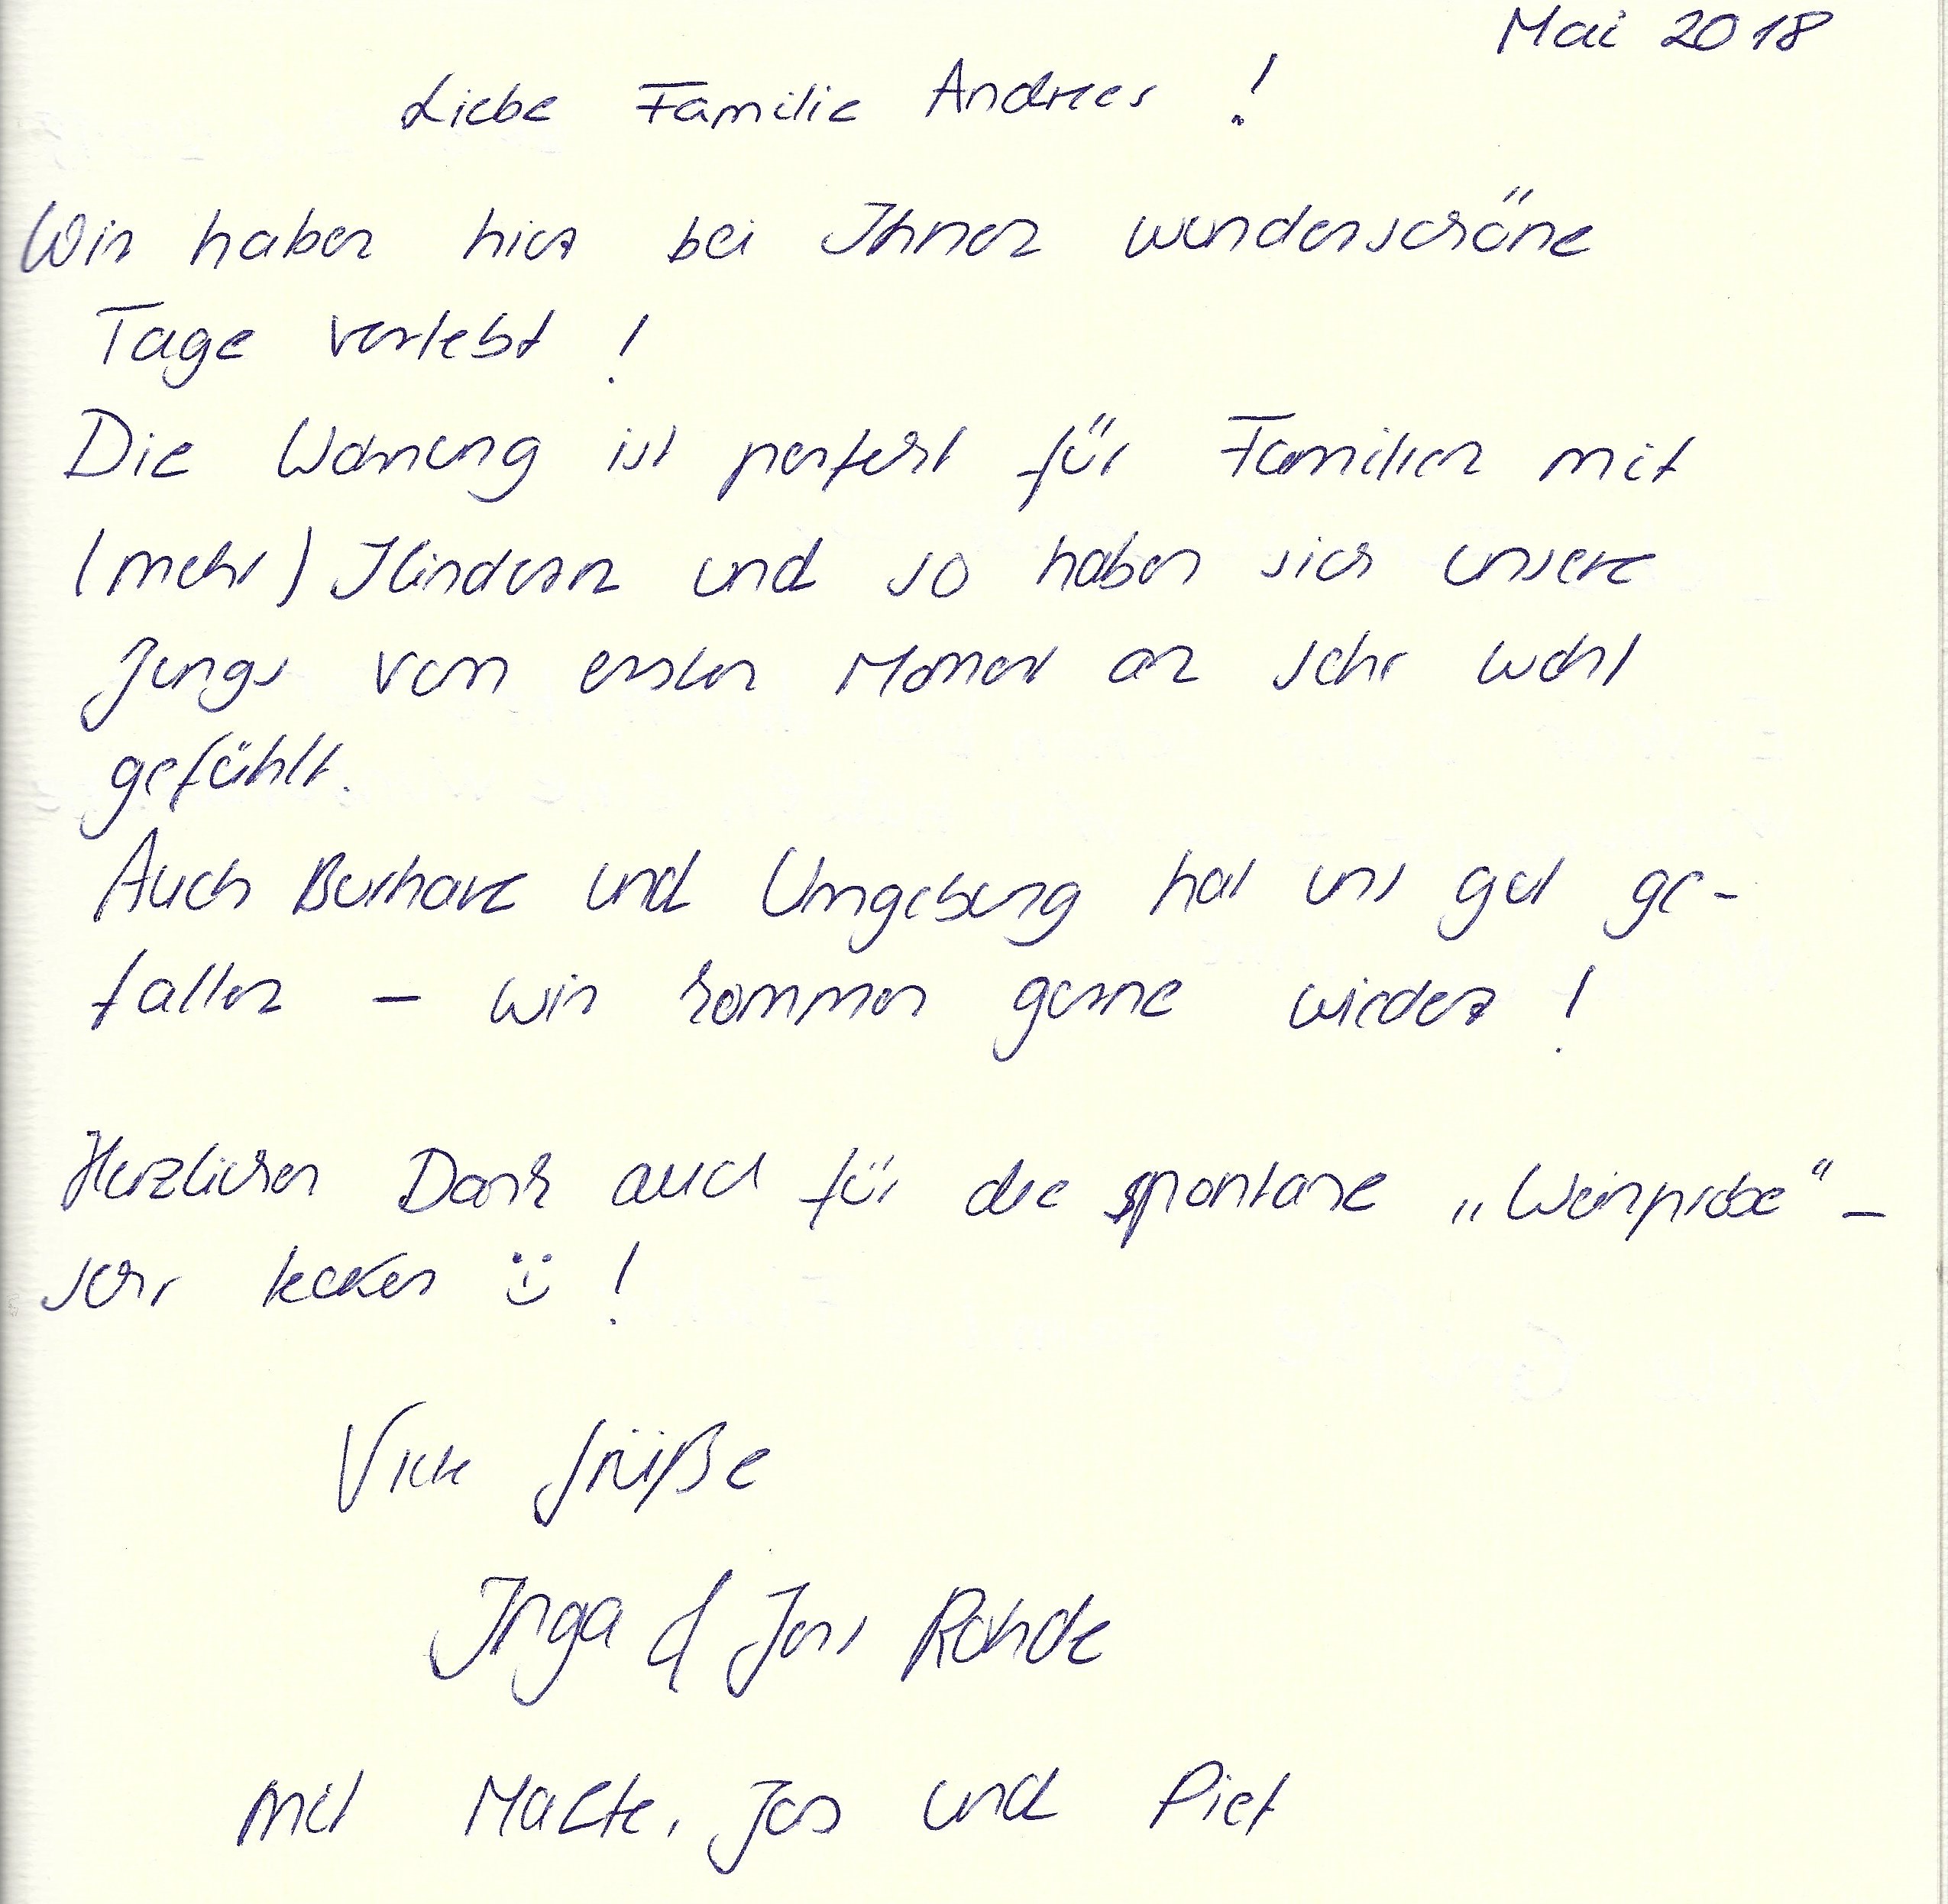 Mai 2018
Liebe Familie Andrees !
Wir haben hier bei Ihnen wunderschöne
Tage verlebt !
Die Wohnung ist perfekt für Familien mit
(mehr) Kindern und so haben sich unsere
Jungs vom ersten Moment an sehr wohl
gefühlt.
Auch Burhave und Umgebung hat uns gut ge-
fallen – wir kommen gerne wieder !
Herzlichen Dank auch für die spontane „Weinprobe“ –
sehr lecker ü !
Viele Grüße
Inga & Jens Rohde
mit Malte, Jos und Piet